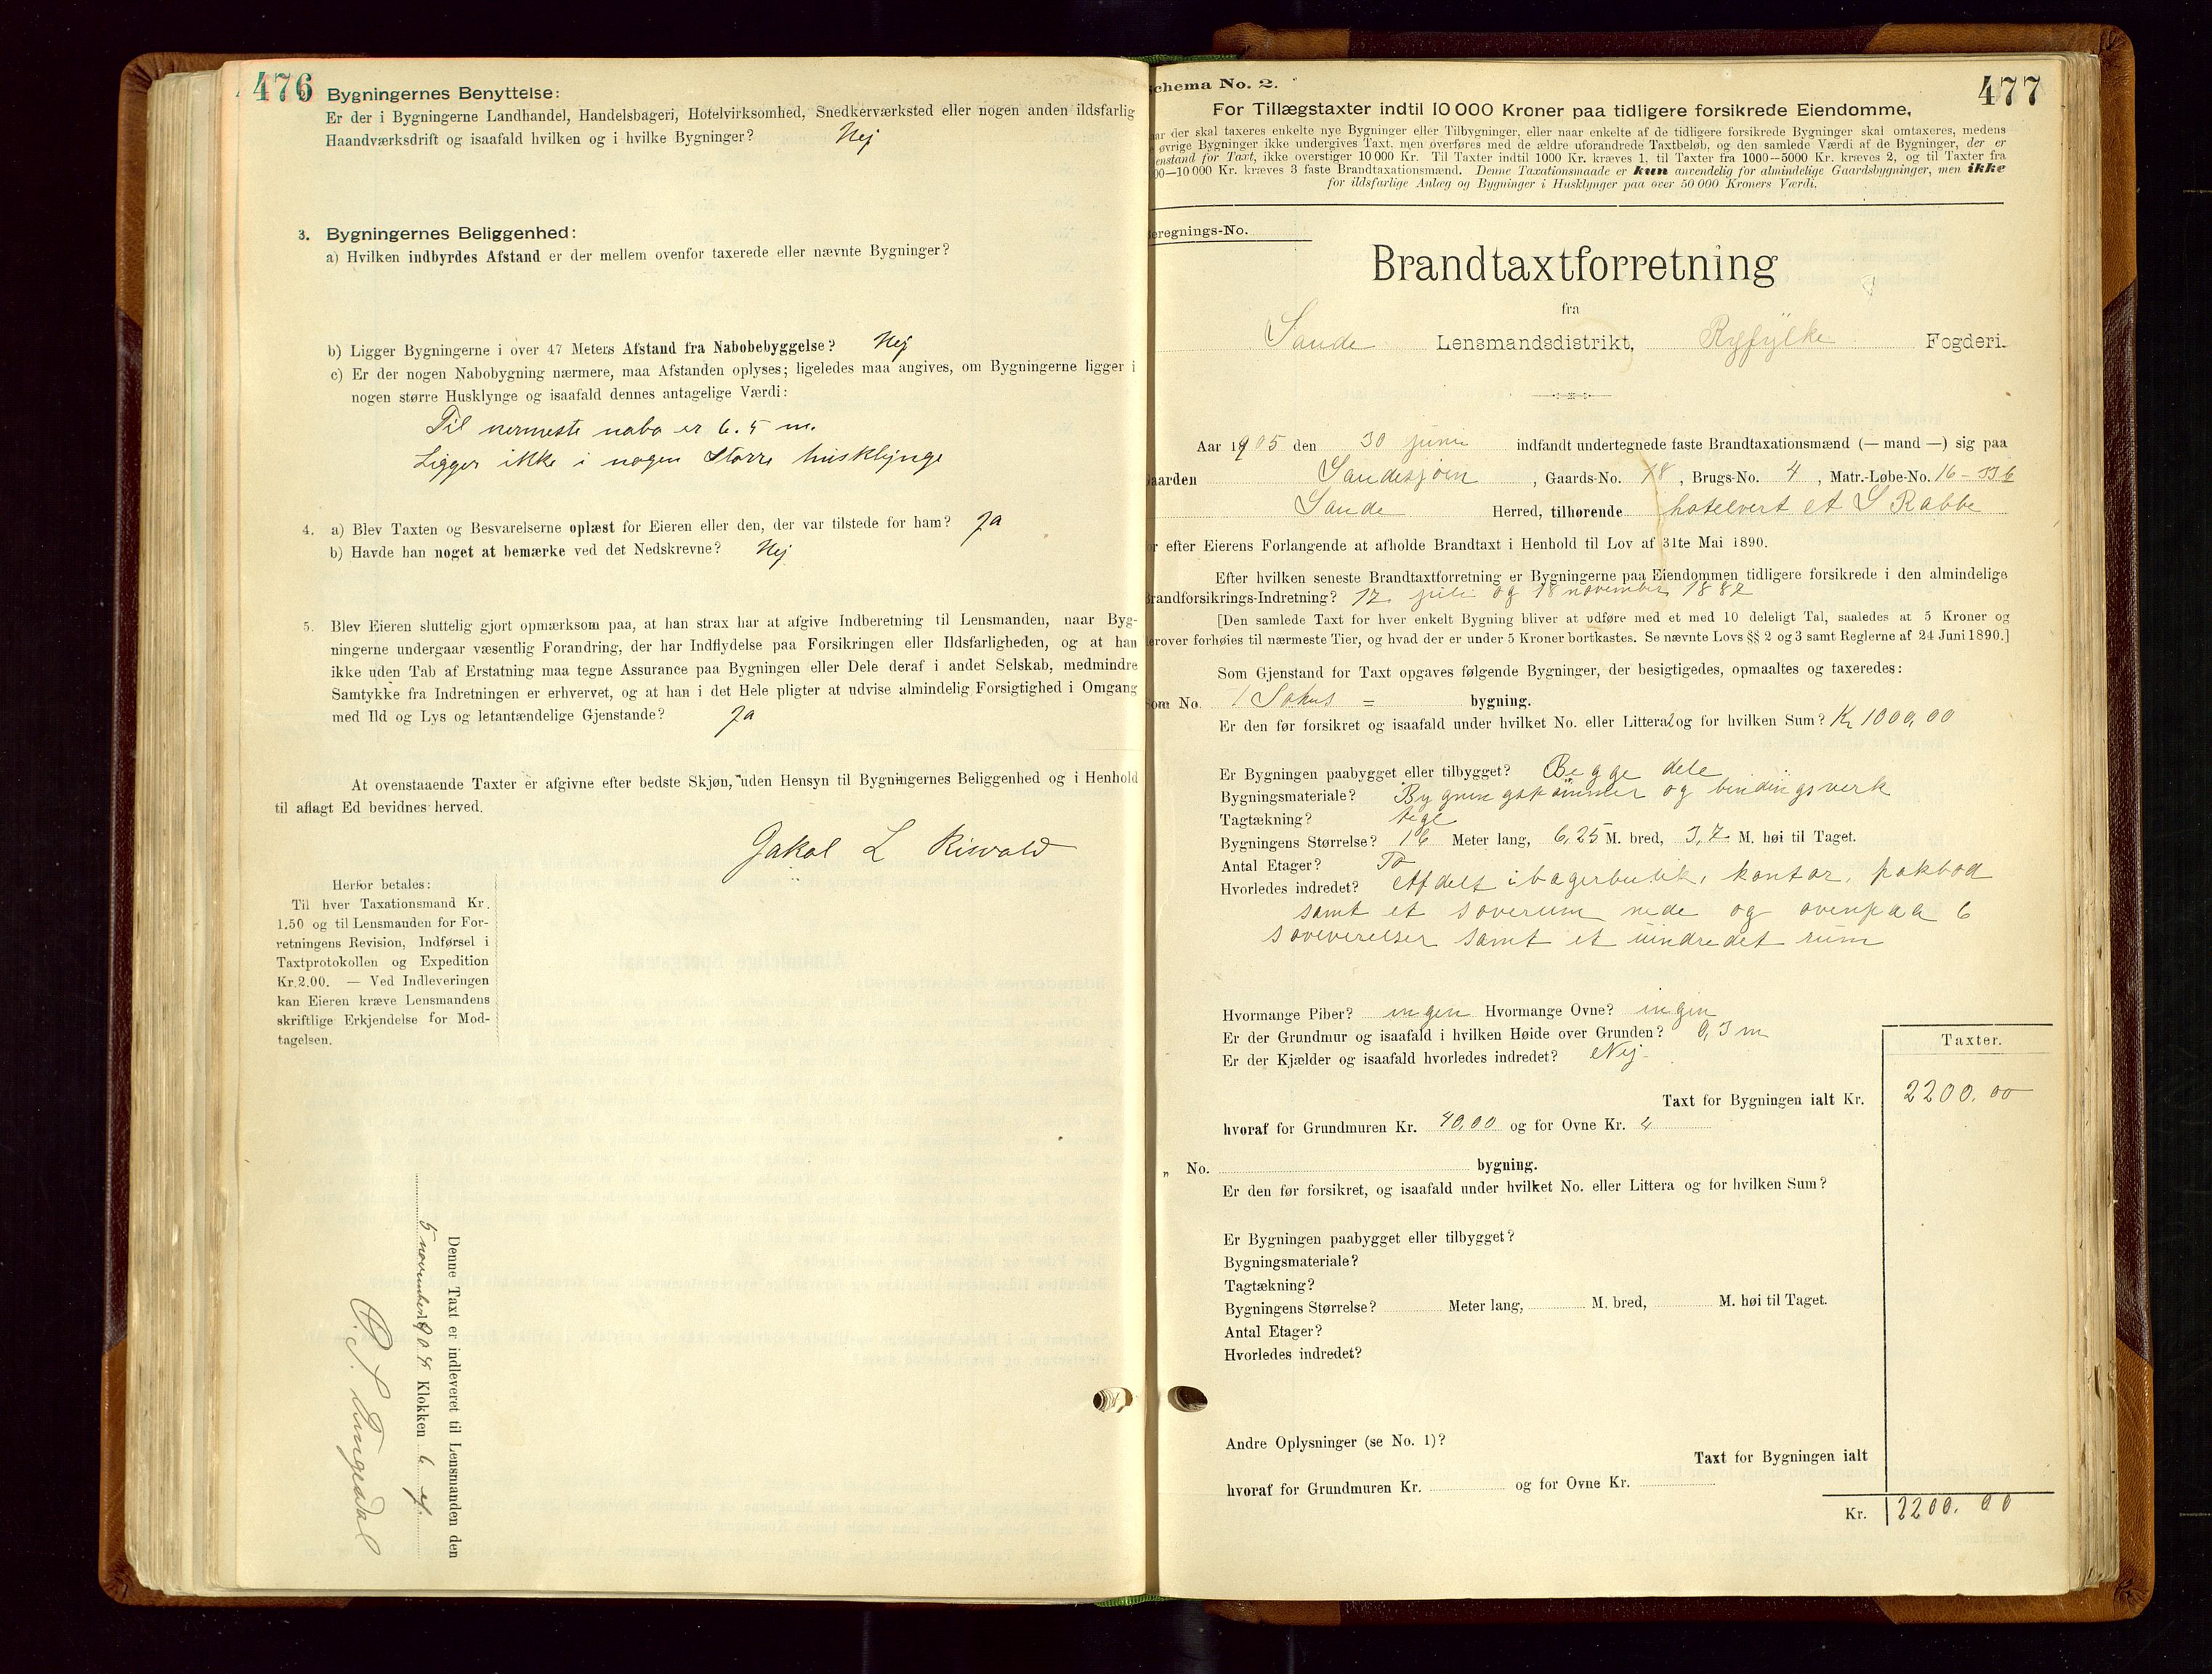 476
2. Bygningernes Benyttelse:
Er der i Bygningerne Landhandel, Handelsbageri, Hotelvirksomhed, Snedkerværksted eller nogen anden ildsfarlig
Haandværksdrift og isaafald hvilken og i hvilke Bygninger? Nej
3. Bygningernes Beliggenhed:
a) Hvilken indbyrdes Afstand er der mellem ovenfor taxerede eller nævnte Bygninger?
b) Ligger Bygningerne i over 47 Meters Afstand fra Nabobebyggelse? Nej
c) Er der nogen Nabobygning nærmere, maa Afstanden oplyses; ligeledes maa angives, om Bygningerne ligger i
nogen større Husklynge og isaafald dennes antagelige Værdi:
Til nermeste nabo er 6.5 m.
Ligger ikke i nogen Storre husklynge
4. a) Blev Taxten og Besvarelserne oplæst for Eieren eller den, der var tilstede for ham? Ja
b) Havde han noget at bemærke ved det Nedskrevne? Nej
5. Blev Eieren sluttelig gjort opmærksom paa, at han strax har at afgive Indberetning til Lensmanden, naar Byg-
ningerne undergaar væsentlig Forandring, der har Indflydelse paa Forsikringen eller Ildsfarligheden, og at han
ikke uden Tab af Erstatning maa tegne Assurance paa Bygningen eller Dele deraf i andet Selskab, medmindre
Samtykke fra Indretningen er erhvervet, og at han i det Hele pligter at udvise almindelig Forsigtighed i Omgang
med Ild og Lys og letantændelige Gjenstande? Ja
At ovenstaaende Taxter er afgivne efter bedste Skjøn, uden Hensyn til Bygningernes Beliggenhed og i Henhold
til aflagt Ed bevidnes herved.
Jakob L Risvold
Herfor betales:
Til hver Taxationsmand Kr.
1.50 og til Lensmanden for For-
retningens Revision, Indførsel i
Taxtprotokollen og Expedition
Kr. 2.00. — Ved Indleveringen
kan Eieren kræve Lensmandens
skriftlige Erkjendelse for Mod-
tagelsen.
Denne Taxt er indleveret til Lensmanden den
5 november 1904 Klokken 6 ef.
477
Schema No. 2.
For Tillægstaxter indtil 10 000 Kroner paa tidligere forsikrede Eiendomme,
aar der skal taxeres enkelte nye Bygninger eller Tilbygninger, eller naar enkelte af de tidligere forsikrede Bygninger skal omtaxeres, medens
øvrige Bygninger ikke undergives Taxt, men overføres med de ældre uforandrede Taxtbeløb, og den samlede Værdi af de Bygninger, der er
enstand for Taxt, ikke overstiger 10 000 Kr. Til Taxter indtil 1000 Kr. kræves 1, til Taxter fra 1000—5000 Kr. kræves 2, og til Taxter fra
00—10 000 Kr. kræves 3 faste Brandtaxationsmænd. Denne Taxationsmaade er kun anvendelig for almindelige Gaardsbygninger, men ikke
for ildsfarlige Anlæg og Bygninger i Husklynger paa over 50 000 Kroners Værdi.
eregnings-No.
Brandtaxtforretning
fra
Sande Lensmandsdistrikt, Ryfylke Fogderi.
Aar 1905 den 30 juni indfandt undertegnede faste Brandtaxationsmænd (— mand —) sig paa
aarden Sandesjøen, Gaards-No. 18, Brugs-No. 4, Matr.-Løbe-No. 16 - 33 b
Sande Herred, tilhørende hotelvert et S Rabbe
r efter Eierens Forlangende at afholde Brandtaxt i Henhold til Lov af 31te Mai 1890.
Efter hvilken seneste Brandtaxtforretning er Bygningerne paa Eiendommen tidligere forsikrede i den almindelige
randforsikrings-Indretning? 17 juli og 18 november 1882
[Den samlede Taxt for hver enkelt Bygning bliver at udføre med et med 10 deleligt Tal, saaledes at 5 Kroner og
erover forhøies til nærmeste Tier, og hvad der er under 5 Kroner bortkastes. Se nævnte Lovs §§ 2 og 3 samt Reglerne af 24 Juni 1890.]
Som Gjenstand for Taxt opgaves følgende Bygninger, der besigtigedes, opmaaltes og taxeredes:
om No. 1 Sohus = bygning.
Er den før forsikret og isaafald under hvilket No. eller Littera og for hvilken Sum? Kr 1000,00
Er Bygningen paabygget eller tilbygget? Begge dele
Bygningsmateriale? Bygningstømmer og bindingsverk
Tagtækning? tegl
Bygningens Størrelse? 16 Meter lang, 6,25 M. bred, 3,7 M. høi til Taget.
Antal Etager? To
Hvorledes indredet? Afdelt i bagerbutik, kontor, pakbod
samt et soverum nede og ovenpaa 6
soveverelser samt et uindredet rum
Hvormange Piber? ingen Hvormange Ovne? ingen
Er der Grundmur og isaafald i hvilken Høide over Grunden? 0,3 m
Er der Kjælder og isaafald hvorledes indredet? Nej
Taxter.
Taxt for Bygningen ialt Kr. 2200.00
hvoraf for Grundmuren Kr. 40,00 og for Ovne Kr. "
„ No. bygning.
Er den før forsikret, og isaafald under hvilket No. eller Littera og for hvilken Sum?
Er Bygningen paabygget eller tilbygget?
Bygningsmateriale?
Tagtækning?
Bygningens Størrelse? Meter lang, M. bred, M. høi til Taget.
Antal Etager?
Hvorledes indredet?
Andre Oplysninger (se No. 1)?
Taxt for Bygningen ialt
hvoraf for Grundmuren Kr. og for Ovne Kr.
Kr. 2200.00